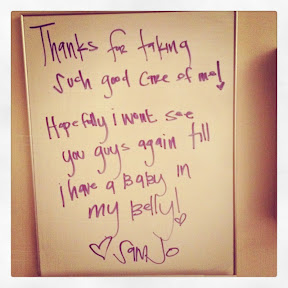 Thanks for taking
such good care of me!
Hopefully i wont see
you guys again till
i have a Baby in
my Belly!
♡ SanJo